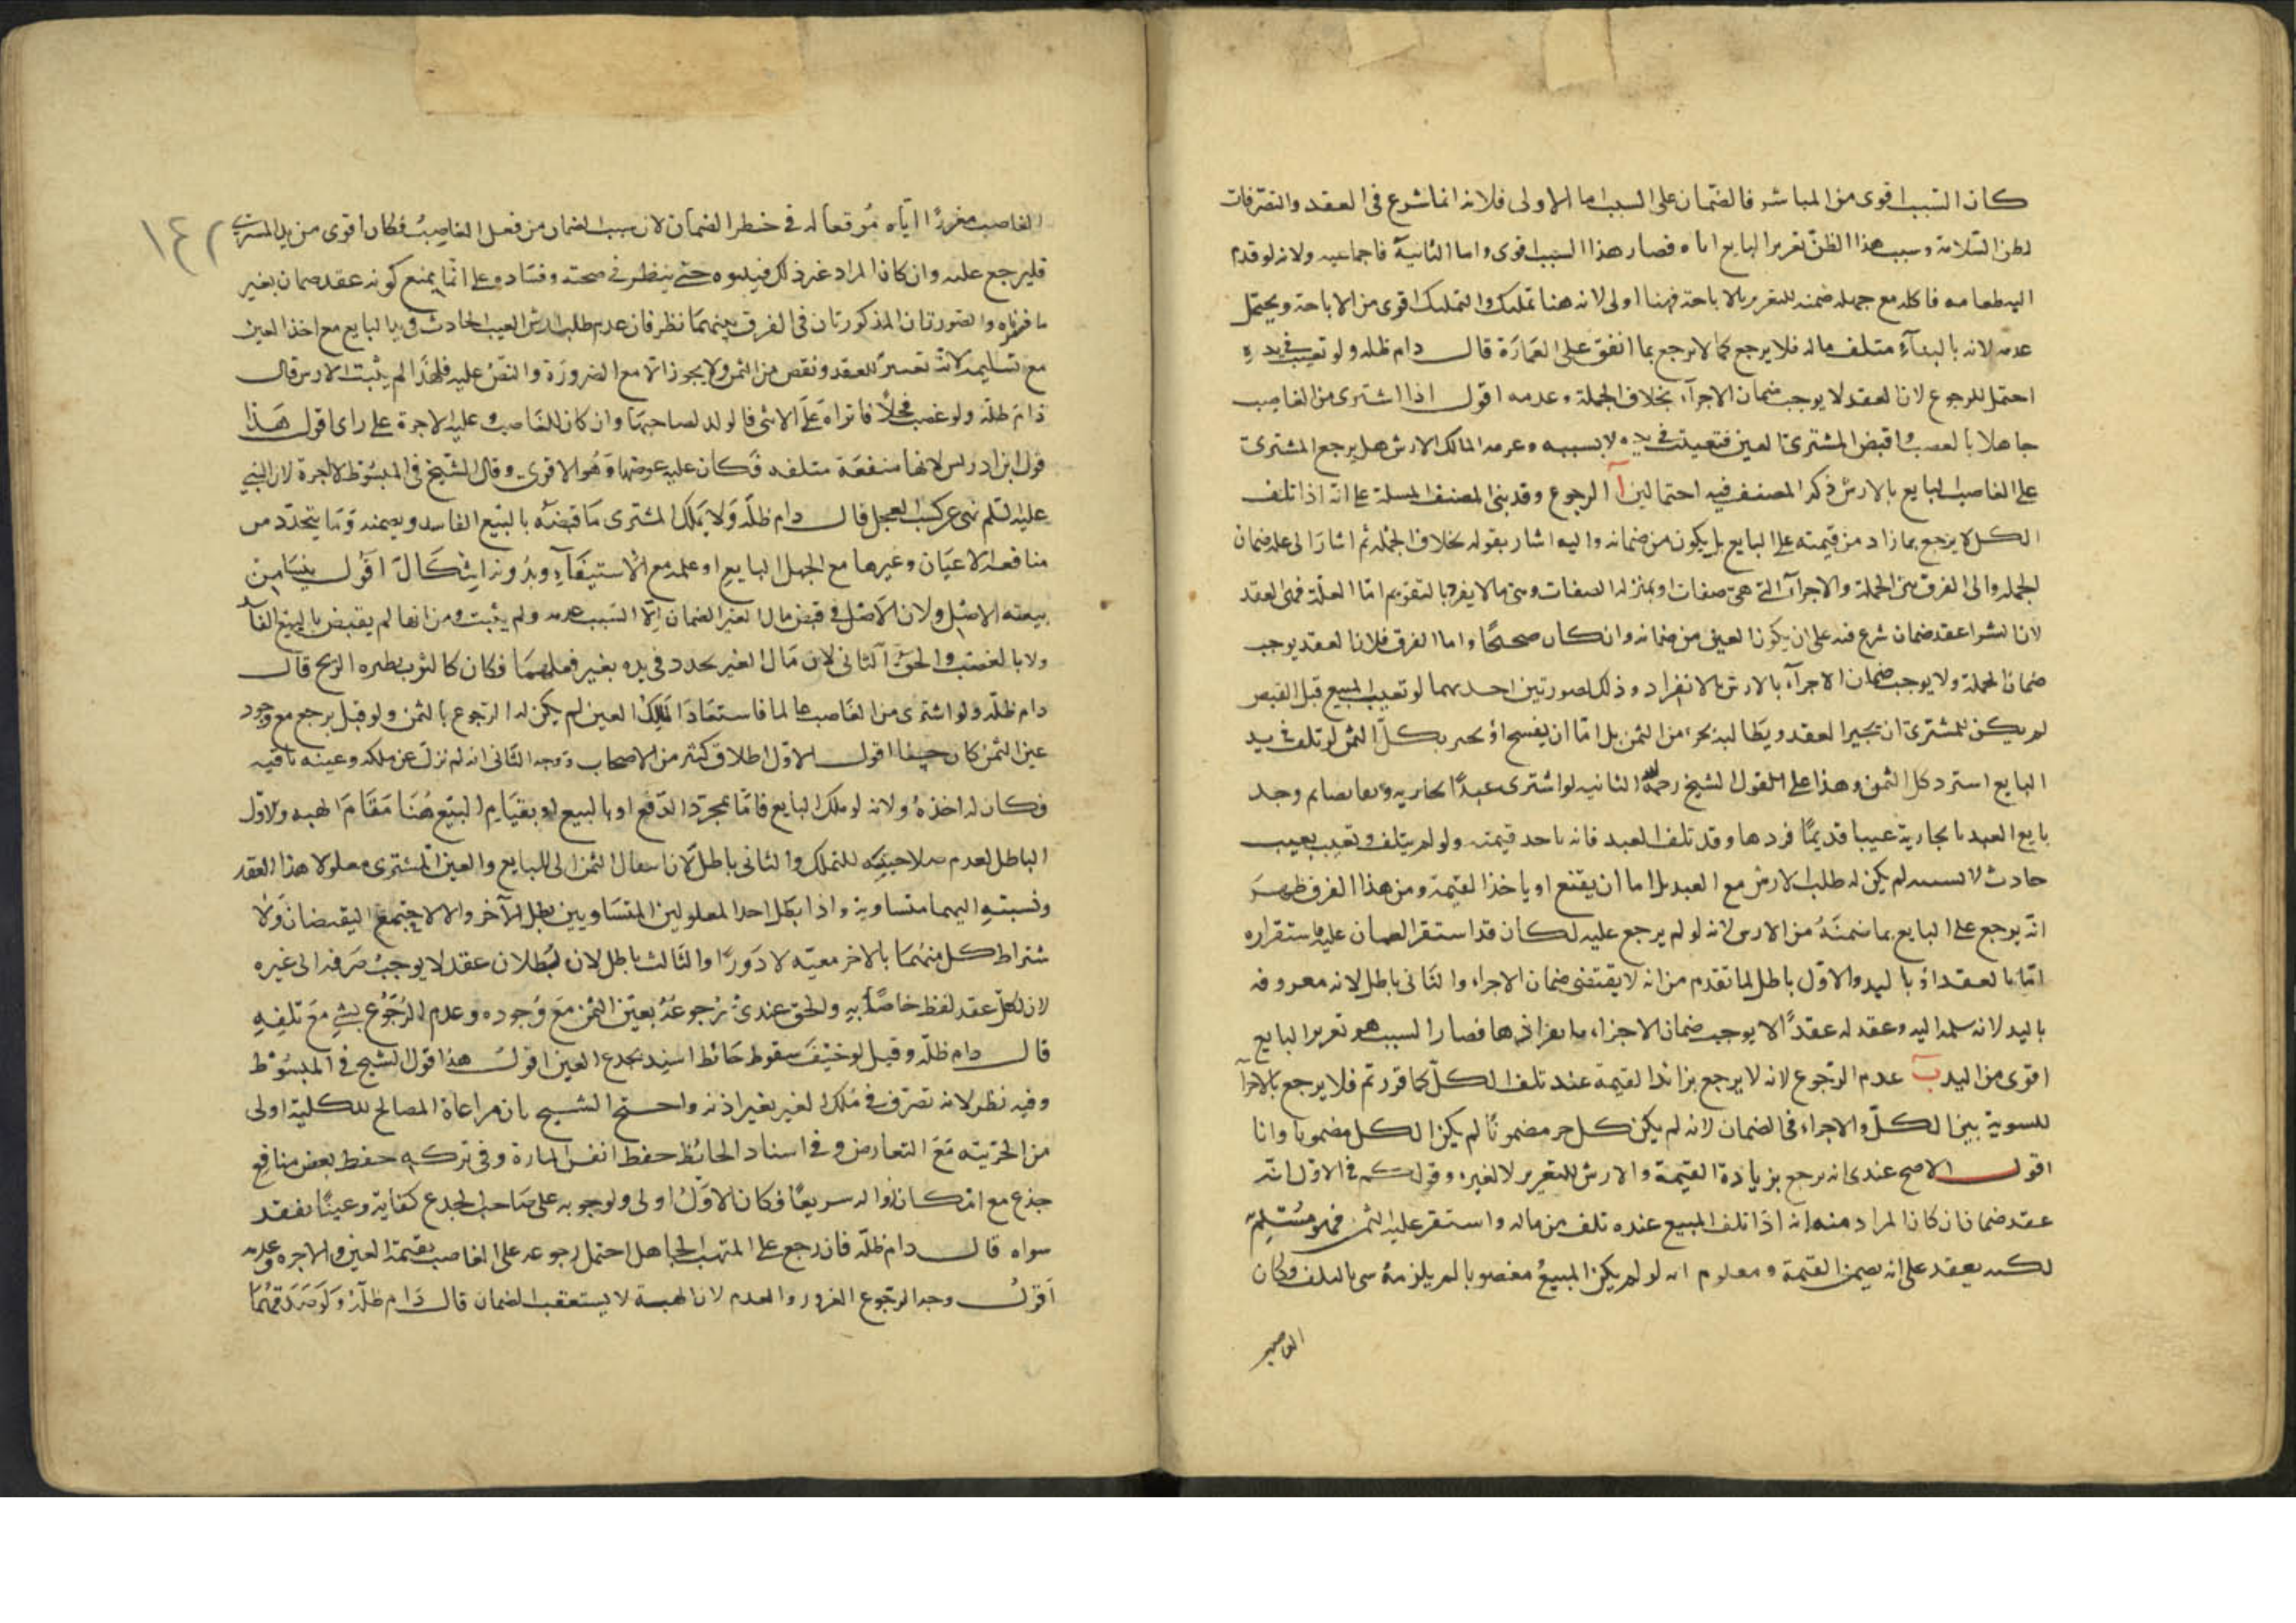 كان السبب اقوى من المباشر فالضمان على السبب اما الاولى فلانه انما شرع فى العقد والتصرفات
لظن السلامة وسبب هذا الظن تغرير البايع اياه فصار هذا السبب اقوى واما الثانية فاجماعيه ولانه لو قدم
اليه طعامه فاكله مع جهله ضمنه للتغرير بالاباحة فهنا اولى لانه هنا تمليك والتمليك اقوى من الاباحة ويحتمل
عدمه لانه بالبناء متلف ماله فلا يرجع كما لا يرجع بما انفق على العمارة قال دام ظله ولو تعيب فى يده
احتمل الرجوع لان العقد لا يوجب ضمان الاجزاء بخلاف الجملة وعدمه اقول اذا اشترى من الغاصب
جاهلا بالغصب وقبض المشترى العين فتعيبت فى يده لا بسببه وغرمه المالك الارش هل يرجع المشترى
على الغاصب البايع بالارش ذكر المصنف فيه احتمالين آ الرجوع وقد بنى المصنف المسلة على انه اذا تلف
الكل لا يرجع بما زاد من قيمته على البايع بل يكون من ضمانه واليه اشار بقوله بخلاف الجملة ثم اشار الى علة ضمان
الجملة والى الفرق بين الجملة والاجزاء التى هى صفات او بمنزلة الصفات وهى ما لا يفرد بالتقويم اما العلة فهى العقد
لان الشرا عقد ضمان شرع فيه على ان يكون العين من ضمانه وان كان صحيحًا واما الفرق فلان العقد يوجب
ضمان الجملة ولا يوجب ضمان الاجزاء بالارش بالانفراد وذلك لصورتين احديهما لو تعيب المبيع قبل القبض
لم يكن للمشترى ان يجيز العقد ويطالبه بجزء من الثمن بل اما ان يفسخ او يجيز بكل الثمن لو تلف فى يد
البايع استرد كل الثمن وهذا على القول الشيخ رحمه الله الثانيه لو اشترى عبدًا بجارية وتقابضا ثم وجد
بايع العبد بالجارية عيبا قديمًا فردها وقد تلف العبد فانه ياخذ قيمته ولو لم يتلف وتعيب بعيب
حادث لا بسببه لم يكن له طلب الارش مع العبد بل اما ان يقنع او ياخذ القيمة ومن هذا الفرق ظهر
انه يرجع على البايع بما ضمنه من الارش لانه لو لم يرجع عليه لكان قد استقر الضمان عليه واستقراره
اما بالعقد او باليد والاول باطل لما تقدم من انه لا يقتضى ضمان الاجزاء والثانى باطل لانه مغرور فيه
باليد لانه سلمه اليه وعقد له عقدًا لا يوجب ضمان الاجزاء فصار السبب هو تغرير البايع
اقوى من اليد ب عدم الرجوع لانه لا يرجع بزائد القيمة عند تلف الكل كما قررتم فلا يرجع بالاجزاء
للسوية بين الكل والاجزاء فى الضمان لانه لم يكن كل جزء مضمونًا لم يكن الكل مضمونا وانا
اقول الاصح عندى انه يرجع بزيادة القيمة والارش للتغرير لا لغيره وقولكم فى الاول انه
عقد ضمان فان كان المراد منه انه اذا تلف المبيع عنده تلف من ماله واستقر عليه الثمن فهو مسلم
لكنه يعقد على انه يضمن القيمة ومعلوم انه لو لم يكن المبيع مغصوبا لم يلزمه شى بالتلف وكان
الغاصب
١٤٢
الغاصب مغررًا اياه موقعا له فى خطر الضمان لان سبب الضمان من فعل الغاصب فكان اقوى من يد المشترى
فليرجع عليه وان كان المراد غير ذلك فبينوه حتى ينظر فى صحته وفساده على انا نمنع كونه عقد ضمان بغير
ما فسرناه والصورتان المذكورتان فى الفرق بينهما نظر فان عدم طلب ارش العيب الحادث فى يد البايع مع اخذ العين
مع تسليمه لانه تغيير للعقد ونقص من الثمن ولا يجوز الا مع الضرورة والنص عليه فلهذا لم يثبت الارش قال
دام ظله ولو غصب فحلًا فانزاه على الانثى فالولد لصاحبها وان كان للغاصب وعليه الاجرة على راى اقول هذا
قول ابن ادريس لانها منفعة متلفه فكان عليه عوضها وهو الاقوى وقال الشيخ فى المبسوط لا اجرة لان النبى
عليه السلم نهى عن كسب الفحل قال دام ظله ولا يملك المشترى ما قبضه بالبيع الفاسد ويضمنه وما يتجدد من
منافعه الاعيان وغيرها مع الجهل البايع او علمه مع الاستيفاء وبدونه اشكال اقول ينشا من
تبعيته الاصل ولان الاصل فى قبض مال الغير الضمان الا السبب عدمه ولم يثبت ومن انها لم يقبض بالبيع الفا
ولا بالغصب والحق الثانى لان مال الغير تجدد فى يده بغير فعلهما فكان كالثوب يطيره الريح قال
دام ظله ولو اشترى من الغاصب عالما فاستعاد المالك العين لم يكن له الرجوع بالثمن ولو قيل يرجع مع وجود
عين الثمن كان حسنا اقول الاول اطلاق كثير من الاصحاب ووجه الثانى انه لم يزل عن ملكه وعينه باقيه
فكان له اخذه ولانه لو ملك البايع فاما بمجرد الدفع او بالبيع او بقيام البيع هنا مقام الهبه والاول
الباطل لعدم صلاحيته للتملك والثانى باطل لان انتقال الثمن الى البايع والعين للمشترى معلولا هذا العقد
ونسبته اليهما متساوية واذا بطل احد المعلولين المتساويين بطل الآخر والا لاجتمع النقيضان ولا
شتراط كل منهما بالاخر معيّه لا دورًا والثالث باطل لان بطلان عقد لا يوجب صرفه الى غيره
لان لكل عقد لفظ خاصًا به والحق عندى رجوعه بعين الثمن مع وجوده وعدم الرجوع بشى مع تلفه
قال دام ظله وقيل لو خيف سقوط حائط اسند بجذع الغير اقول هذا قول الشيخ فى المبسوط
وفيه نظر لانه تصرف فى ملك الغير بغير اذنه واحتج الشيخ بان مراعاة المصالح الكلية اولى
من الجزئية مع التعارض وفى اسناد الحائط حفظ انفس المارة وفى تركه حفظ بعض منافع
جذع مع امكان زواله سريعًا فكان الاول اولى ولوجوبه على صاحب الجذع كفاية وعينًا بفقد
سواه قال دام ظله فان رجع على المتهب الجاهل احتمل رجوعه على الغاصب بقيمة العين والاجره وعدمه
اقول وجه الرجوع الغرور والعدم لان الهبة لا يستعقب الضمان قال دام ظله ولو صدقهما